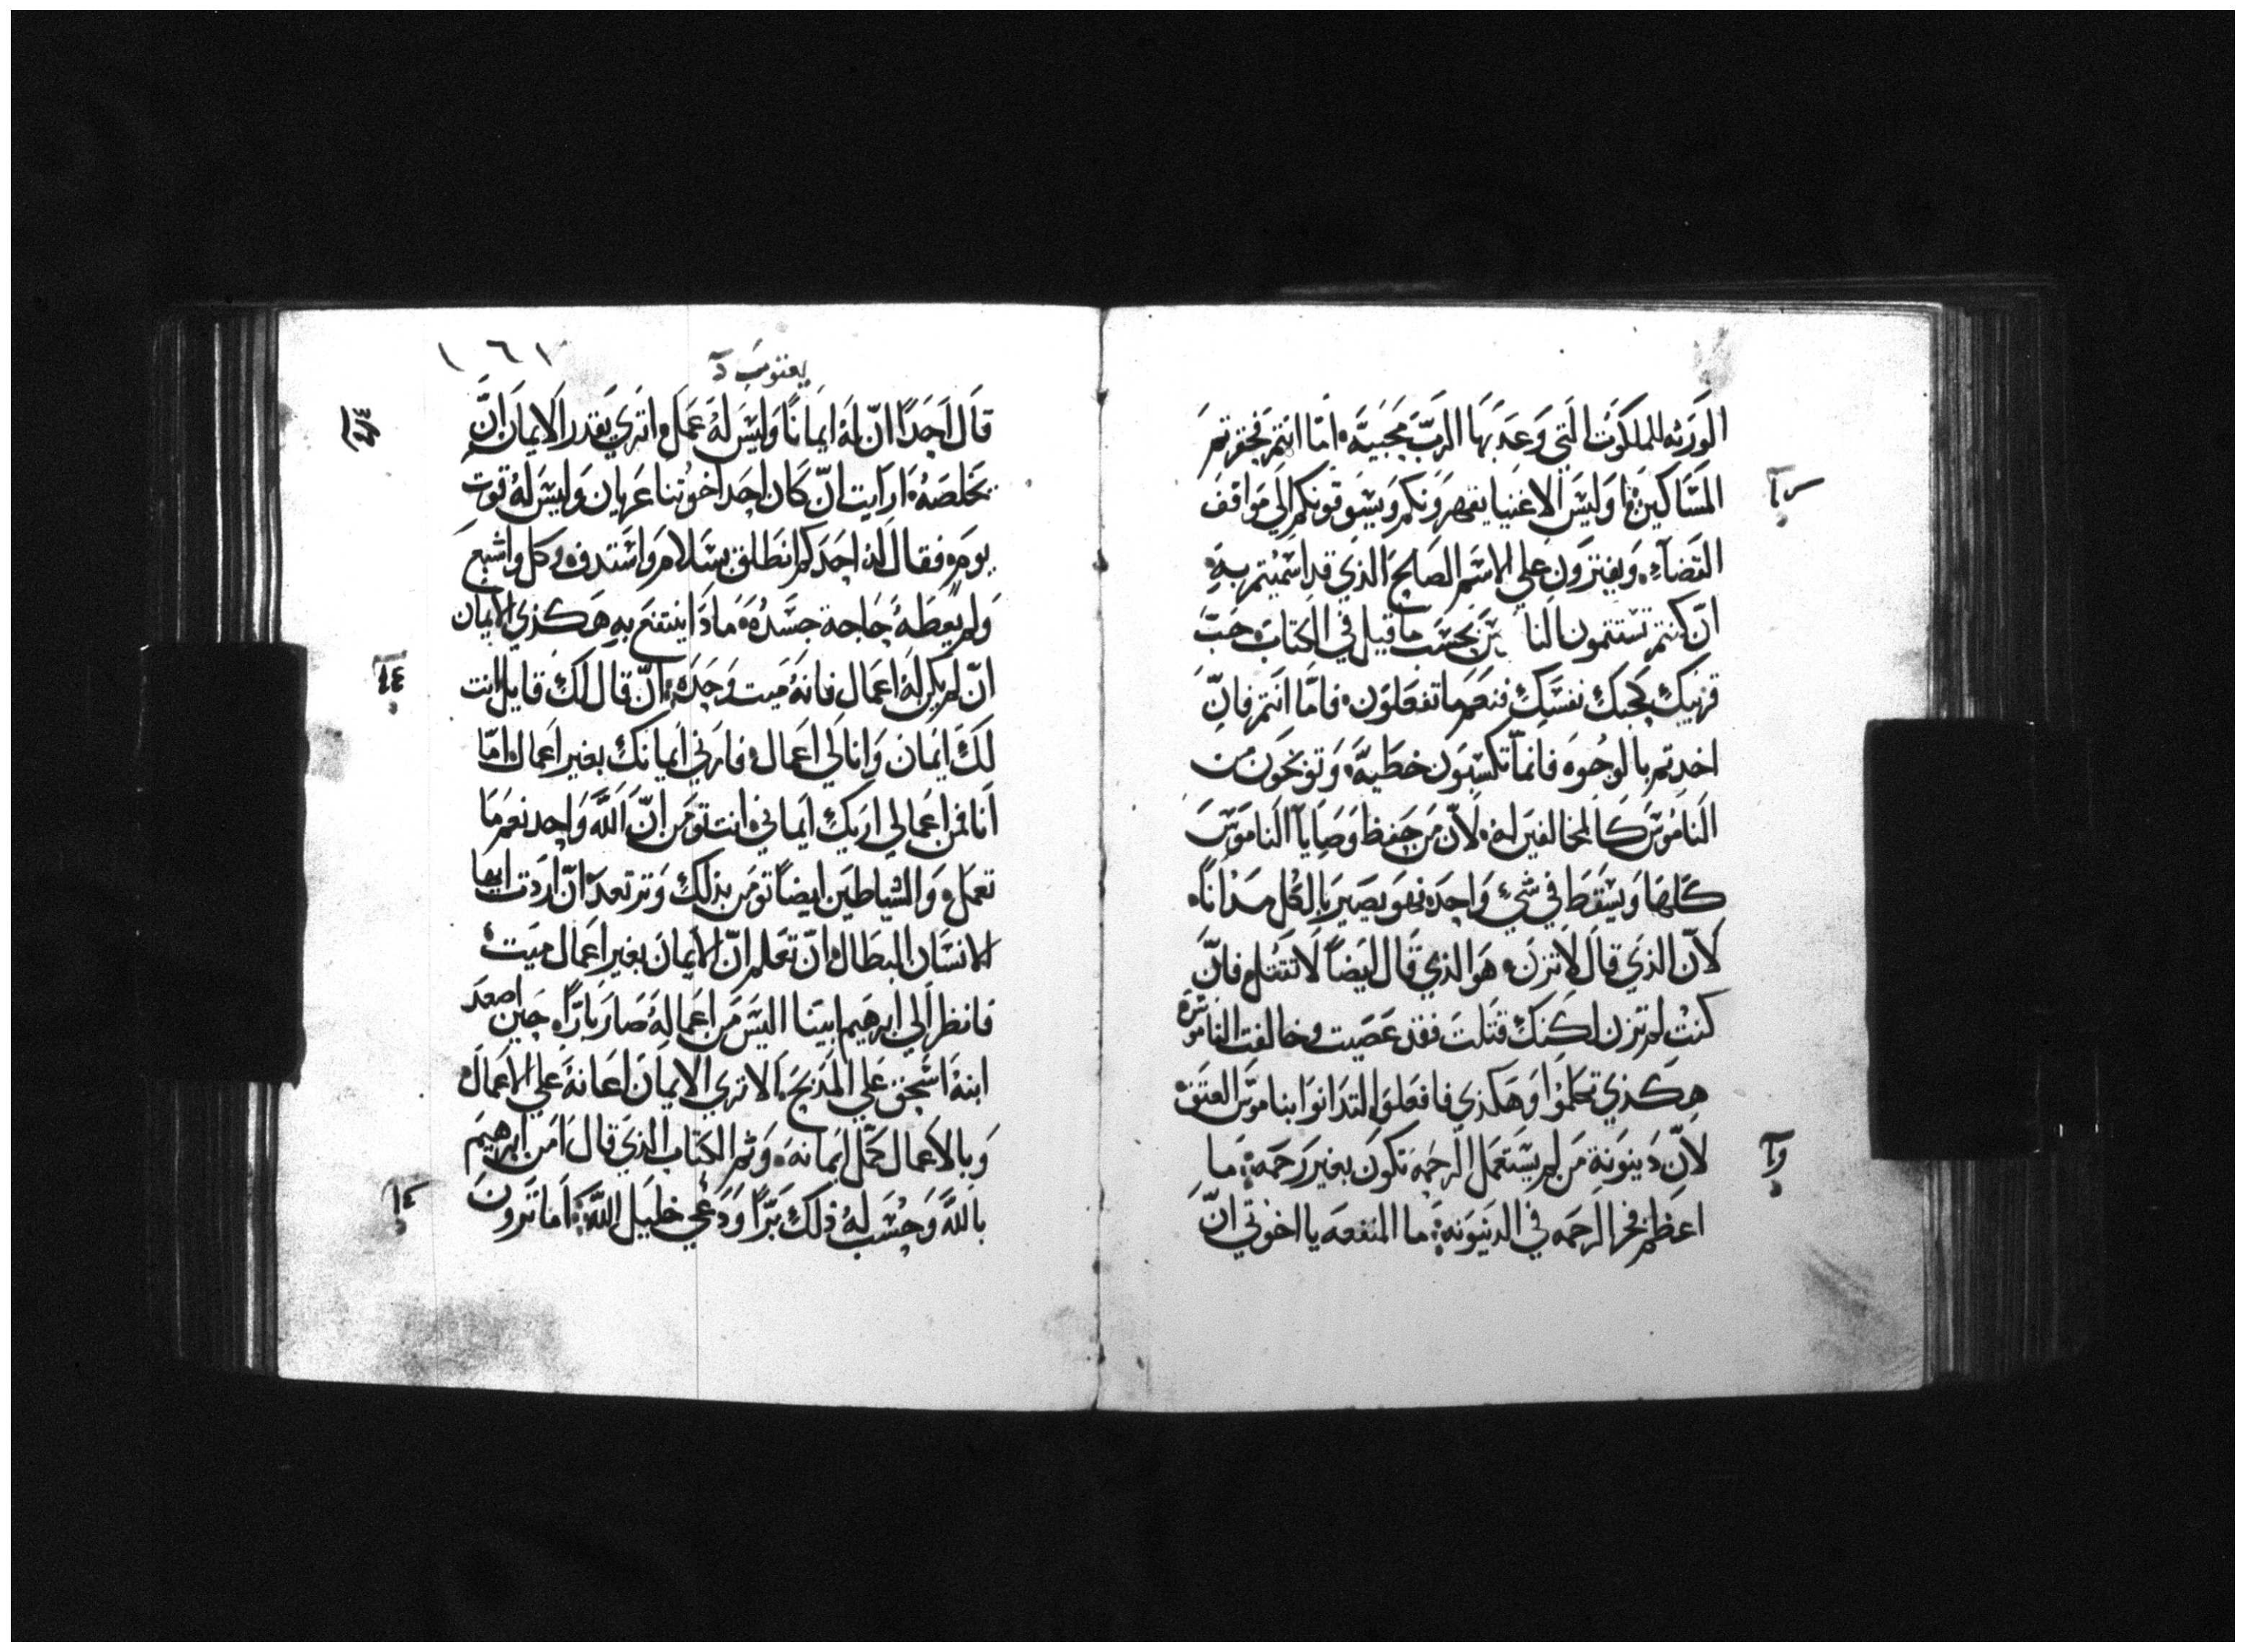 الورثه للملكوت التي وعد بها الرب محبيه اما انتم فحقرتم
المساكين اوليس الاغنيا يقهرونكم ويسوقونكم الي مواقف
القضاء ويفترون علي الاسم الصالح الذي قد اسميتم به
ان كنتم تستتمون النا س بحسب ما قيل في الكتاب حب
قريبك كحبك نفسك فنعم ما تفعلون فاما انتم فان
اخدتم بالوجوه فانما تكسبون خطيه وتوبخون من
الناموس كالمخالفين له لان من حفظ وصايا الناموس
كلها ويسقط في شي واحد فهو يصير بالكل مدانا
لان الذي قال لا تزن هو الذي قال ايضا لا تقتل فان
كنت لم تزن لكنك قتلت فقد عصيت وخالفت الناموس
هكذي تكلموا وهكذي فافعلوا لتدانوا بناموس العتق
لان دينونة من لم يستعمل الرحمه تكون بغير رحمه ما
اعظم فخر الرحمه في الدينونه ما المنفعه يا اخوتي ان
١٦٧
يعقوب
قال احدا ان له ايمانا وليس له عمل اتري يقدر الايمان ان
يخلصه ارايت ان كان احد اخوتنا عريان وليس له قوت
يومه فقال له احدكم انطلق بسلام واستدف وكل واشبع
ولم يعطه حاجة جسده مادا ينتفع به هكذي الايمان
ان لم يكن له اعمال فانه ميت وحده ان قال لك قايل انت
لك ايمان وانا لي اعمال فارني ايمانك بغير اعمال اما
انا فمن اعمالي اريك ايماني انت تومن ان الله واحد نعم ما
تعمل والشياطين ايضا تومن بذلك وترتعد ان اردت ايها
الانسان البطال ان تعلم ان الايمان بغير اعمال ميت
فانظر الي ابرهيم ابينا اليس من اعماله صار بارا حين اصعد
ابنه اسحق علي المذبح الا تري الايمان اعانه علي الاعمال
وبالاعمال كمل ايمانه وتم الكتاب الذي قال امن ابرهيم
بالله وحسب له ذلك برا ودعي خليل الله اما ترون